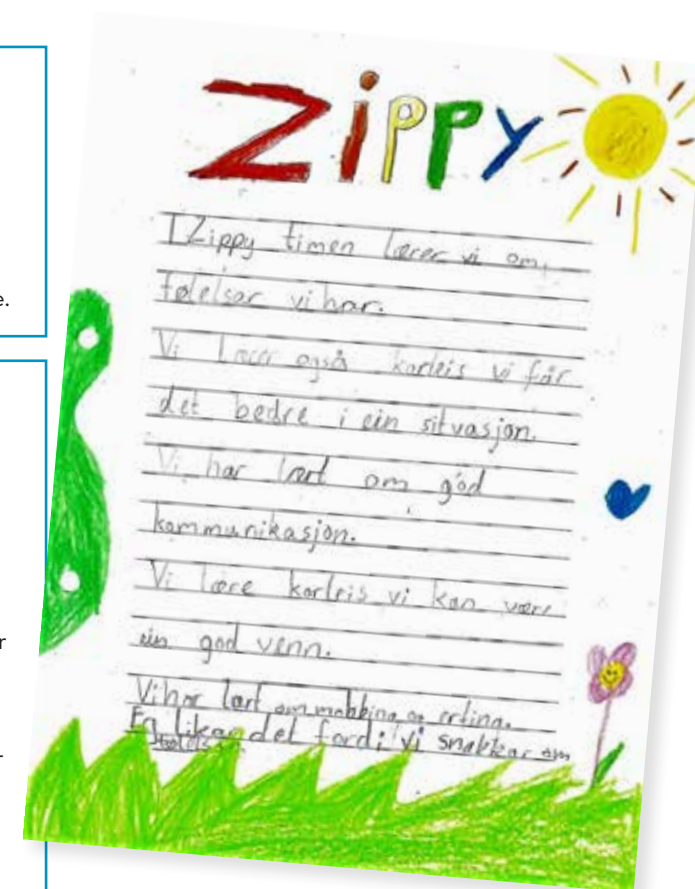 Zippy
I Zippy timen lærer vi om
følelsar vi har.
Vi Lærer også korleis vi får
det bedre i ein situasjon.
Vi har lært om god
kommunikasjon.
Vi lære korleis vi kan være
ein god venn.
Vi har lært om mobbing og erting.
Eg likar det fordi vi snakkar om
følelsar
e.
r